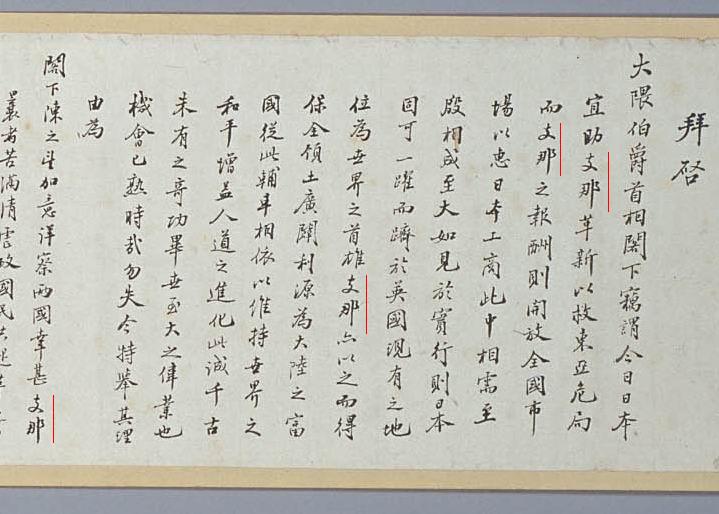 拜啓
大隈伯爵首相閣下竊謂今日日本
宜助支那革新以救東亞危局
而支那之報酬則開放全國市
場以惠日本工商此中相需至
殷相成至大如見於實行則日本
固可一躍而躋於英國現有之地
位為世界之首雄支那亦以之而得
保全領土廣闢利源為大陸之富
國從此輔車相依以維持世界之
和平增益人道之進化此誠千古
未有之奇功畢世至大之偉業也
機會已熟時哉勿失今特舉其理
由為
閣下陳之望加意詳察兩國幸甚支那
曩者苦滿清虐政國民共起革命